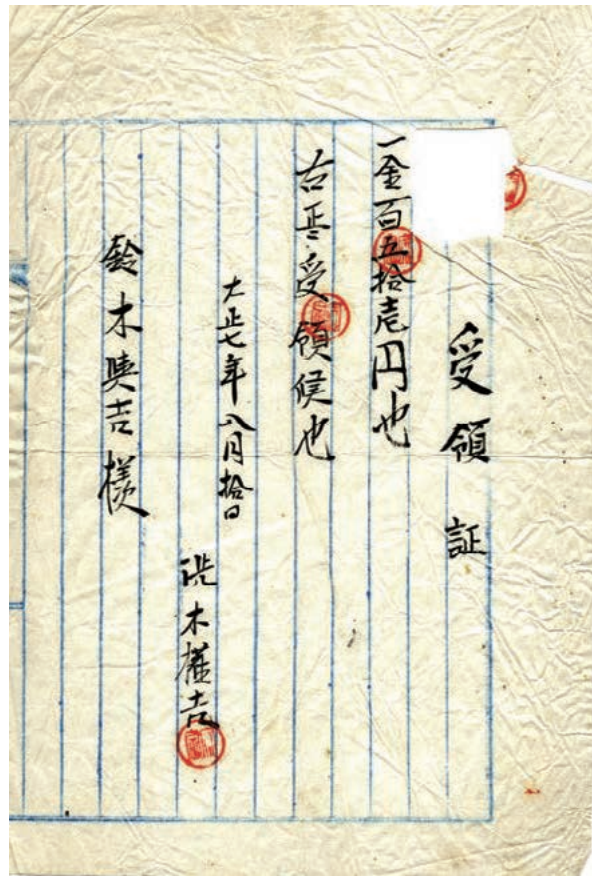 受領証
一金百五拾壱円也
右正ニ受領候也
大正七年八月拾日
木権吉
鈴木與吉様